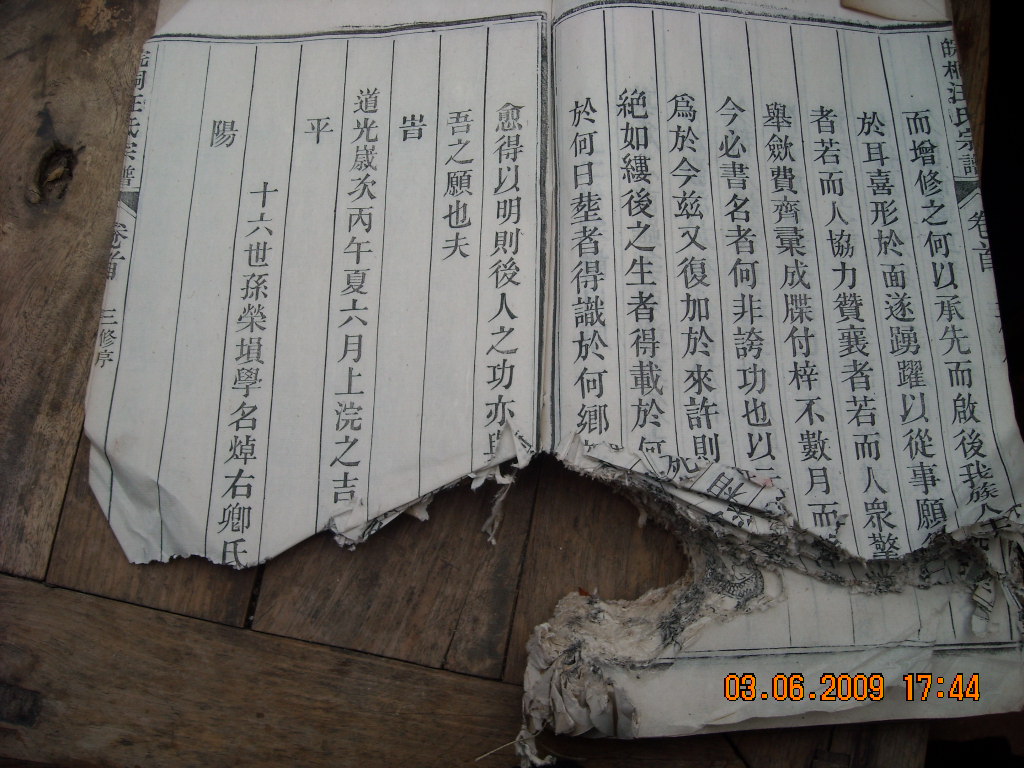 皖桐汪氏宗譜 卷首
而增修之何以承先而啟後我族人
於耳喜形於面遂踴躍以從事願
者若而人協力贊襄者若而人衆擎
舉歛費齊彚成牒付梓不數月而
今必書名者何非誇功也以
爲於今兹又復加於來許則
絶如縷後之生者得載於何
於何日塟者得識於何鄉
愈得以明則後人之功亦與
吾之願也夫
旹
道光嵗次丙午夏六月上浣之吉
平
十六世孫榮塤學名焯右卿氏
陽
皖桐汪氏宗譜 卷首 三修序
03.06.2009 17:44